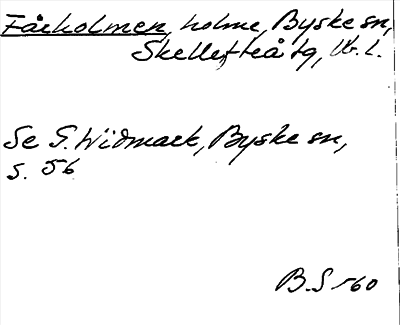 Fårholmen, holme, Byske sn,
Skellefteå tg, Vb. l.
Se S. Widmark, Byske sn,
s. 56
B.S -60